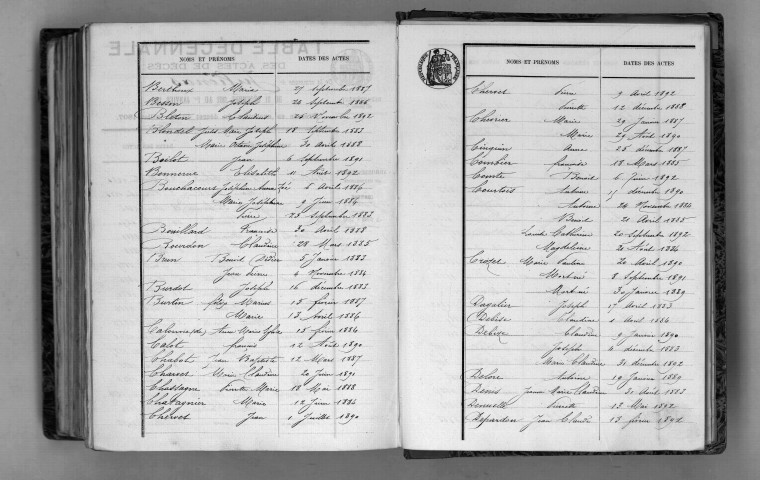 TABLE DÉCENNALE
DES ACTES DE DÉCÈS
NOMS ET PRÉNOMS DATES DES ACTES
Berthoux Marie 27 septembre 1887
Besson Joseph 24 Septembre 1886
Bleton Claudine 24 Novembre 1892
Blondel Jules Marie Joseph 18 Septembre 1883
Marie Joséphine 30 avril 1888
Boilot Jean 6 septembre 1891
Bonnerue Elisabeth 11 Août 1892
Bouchacourt Joséphine 8 Avril 1884
Marie Joséphine 9 Juin 1884
23 septembre 1883
Bouillard Francois 30 Avril 1888
Bourdon Claudine 28 Mars 1885
Brun Benoit Didier 5 Janvier 1883
Jean Pierre 4 Novembre 1884
Burdot Joseph 16 décembre 1883
Burtin Marius 15 février 1887
Marie 13 Avril 1886
Marie 15 1884
Calot francois 12 Août 1890
Chabot Jean Baptiste 12 Mars 1887
Charvet Marie Claudine 20 Juin 1891
Chassagne Marie 18 Mai 1888
Chatagnier Marie 12 Juin 1884
Chervet Jean 1 Juillet 1890
NOMS ET PRÉNOMS DATES DES ACTES
Chervet Pierre 9 avril 1892
12 décembre 1888
Chevrier Marie 29 Janvier 1887
Marie 29 Avril 1890
Cinquin Anne 25 décembre 1887
Combier francois 18 Mars 1885
Comte Benoit 6 Juin 1892
Courtois Antoine décembre 1890
Antoine 24 Novembre 1884
Benoit 21 Avril 1885
Catherine 20 Septembre 1892
Magdeleine 20 Août 1884
Crozet Marie 20 Avril 1890
Mort né 8 Septembre 1891
Mort né 30 Janvier 1889
Dagallier Joseph 17 Avril 1883
Debise Claudine 1884
Debize Claudine 9 Janvier 1890
Joseph 4 décembre 1883
Marie Claudine 31 décembre 1892
Delore Antoine 19 Janvier 1889
Marie Claudine 31 Août 1883
13 Mai 1892
Depardon Jean Claude 13 février 1892